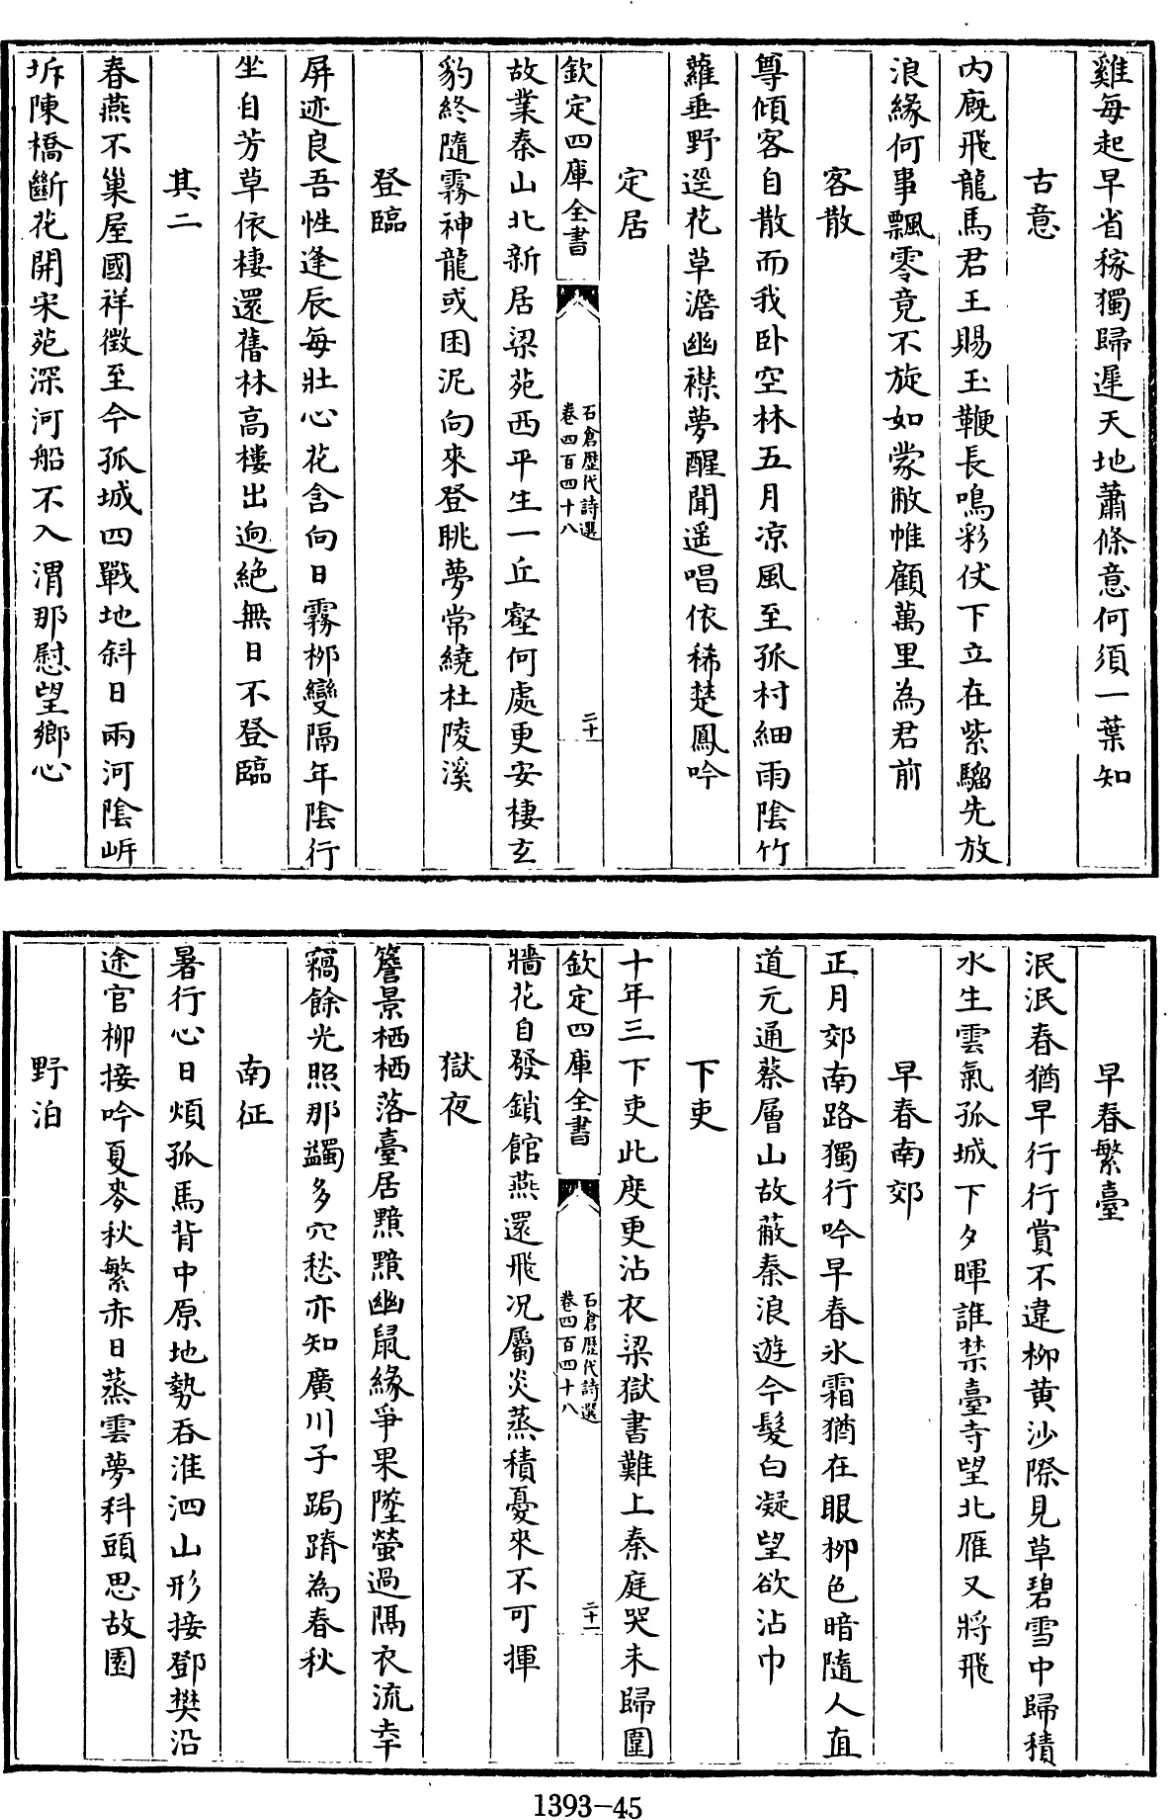 雞每起早省稼獨歸遲天地蕭條意何須一葉知
古意
内廐飛龍馬君王賜玉鞭長鳴彩仗下立在紫騮先放
浪緣何事飄零竟不旋如蒙敝帷顧萬里為君前
客散
尊傾客自散而我卧空林五月凉風至孤村細雨陰竹
蘿垂野逕花草澹幽襟夢醒聞遥唱依稀楚鳳吟
定居
欽定四庫全書
石倉歷代詩選
卷四百四十八
二十
故業秦山北新居梁苑西平生一丘壑何處更安棲玄
豹終隨霧神龍或困泥向來登眺夢常繞杜陵溪
登臨
屏迹良吾性逢辰每壯心花含向日霧柳變隔年陰行
坐自芳草依棲還舊林高樓出迥絶無日不登臨
其二
春燕不巢屋國祥徵至今孤城四戰地斜日兩河陰岍
坼陳橋斷花開宋苑深河船不入渭那慰望鄉心
早春繁臺
泯泯春猶早行行賞不違柳黄沙際見草碧雪中歸積
水生雲氣孤城下夕暉誰禁臺寺望北雁又將飛
早春南郊
正月郊南路獨行吟早春氷霜猶在眼柳色暗隨人直
道元通蔡層山故蔽秦浪遊今髮白凝望欲沾巾
下吏
十年三下吏此度更沾衣梁獄書難上秦庭哭未歸圜
欽定四庫全書
石倉歷代詩選
卷四百四十八
二十一
牆花自發鎖館燕還飛况屬炎蒸積憂來不可揮
獄夜
簷景栖栖落臺居黯黯幽鼠緣爭果墜螢過隔衣流幸
竊餘光照那蠲多穴愁亦知廣川子跼蹐為春秋
南征
暑行心日煩孤馬背中原地勢吞淮泗山形接鄧樊沿
途官柳接吟夏麥秋繁赤日蒸雲夢科頭思故園
野泊
1393-45